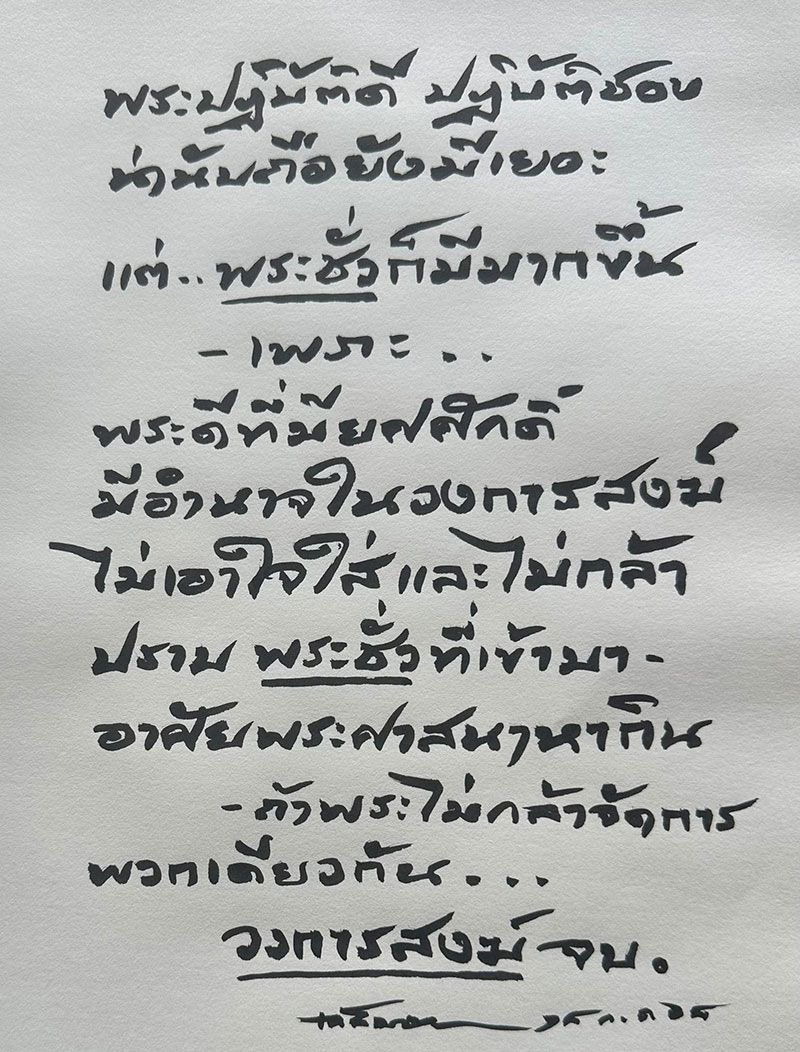 พระปฏิบัติดี ปฏิบัติชอบ
น่านับถือยังมีเยอะ
แต่.. พระชั่วก็มีมากขึ้น
- เพราะ..
พระดีที่มียศศักดิ์
มีอำนาจในวงการสงฆ์
ไม่เอาใจใส่และไม่กล้า
ปราบ พระชั่วที่เข้ามา -
อาศัยพระศาสนาหากิน
- ถ้าพระไม่กล้าจัดการ
พวกเดียวกัน...
วงการสงฆ์ จบ.